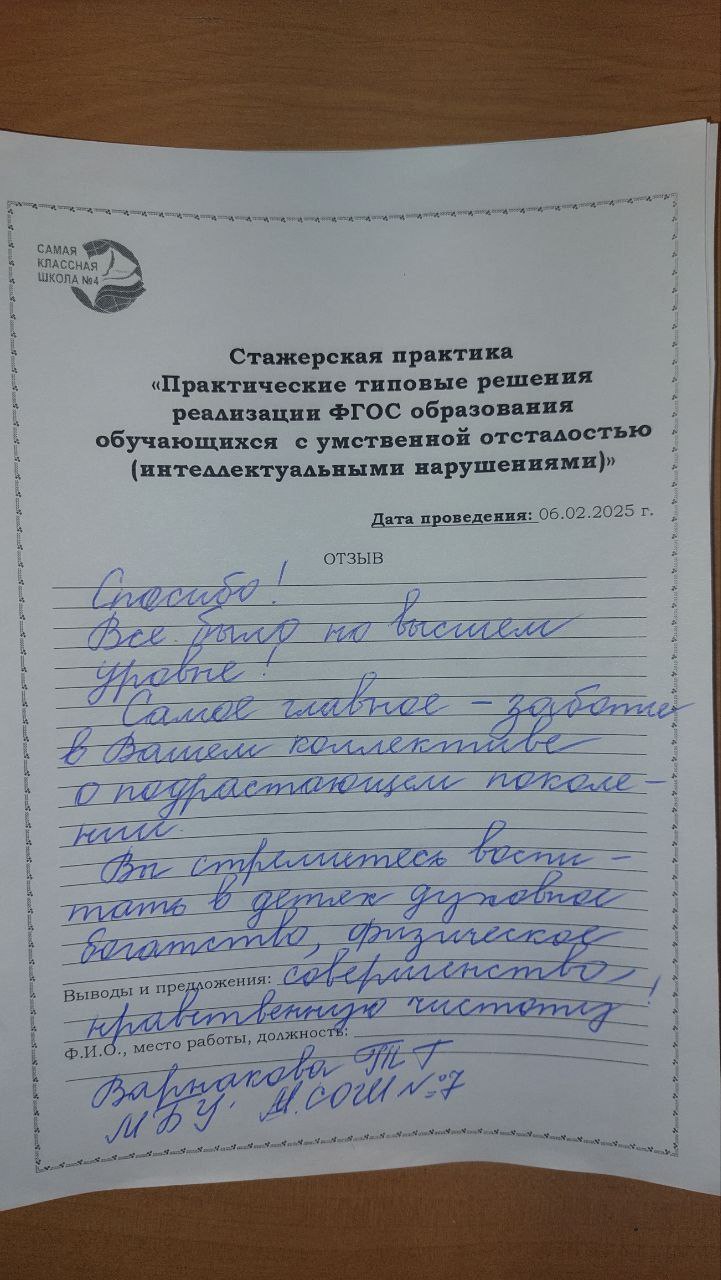 САМАЯ
КЛАССНАЯ
ШКОЛА №4
Стажерская практика
«Практические типовые решения
реализации ФГОС образования
обучающихся с умственной отсталостью
(интеллектуальными нарушениями)»
Дата проведения: 06.02.2025 г.
ОТЗЫВ
Спасибо!
Все было на высшем
уровне!
Самое главное – забота
в Вашем коллективе
о подрастающем поколе-
нии.
Вы стремитесь воспи-
тать в детях духовное
богатство, физическое
Выводы и предложения: совершенство,
нравственную чистоту!
Ф.И.О., место работы, должность:
Варнакова Т Г
МБУ. М.СОШ №7